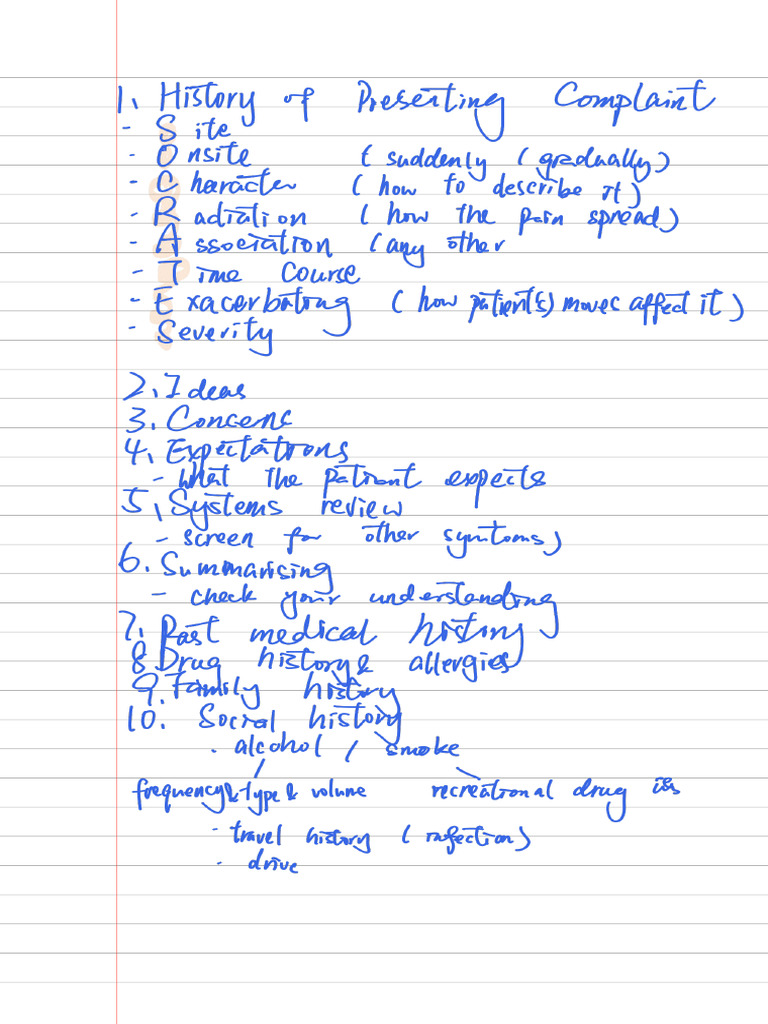 1. History of Presenting Complaint
- Site
- Onsite (suddenly (gradually)
- Character (how to describe it)
- Radiation (how the pain spread)
- Association (any other
- Time course
- Exacerbating (how patient(s) moves affect it)
- Severity
2. Ideas
3. Concerns
4. Expectations
- what the patient expects
5. Systems review
- screen for other symtoms)
6. Summarising
- check your understanding
7. Past medical history
8. Drug history & allergies
9. Family history
10. Social history
· alcohol / smoke
frequency & type & volume recreational drug
- travel history (infection)
- drive